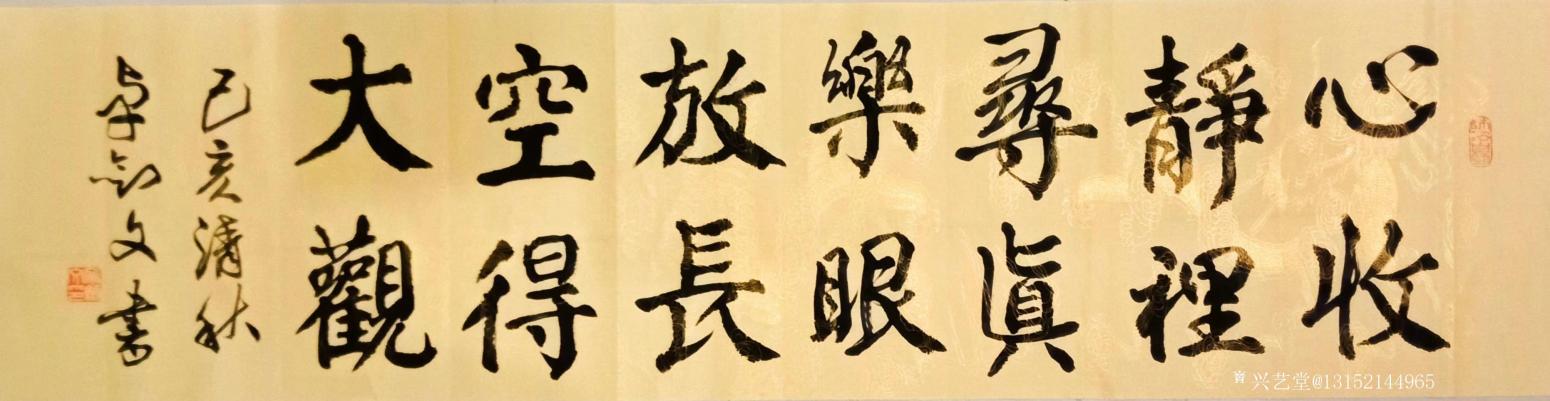 心收
靜裡
尋真
樂眼
放長
空得
大觀
己亥清秋
卓剑文书
兴艺堂@13152144965